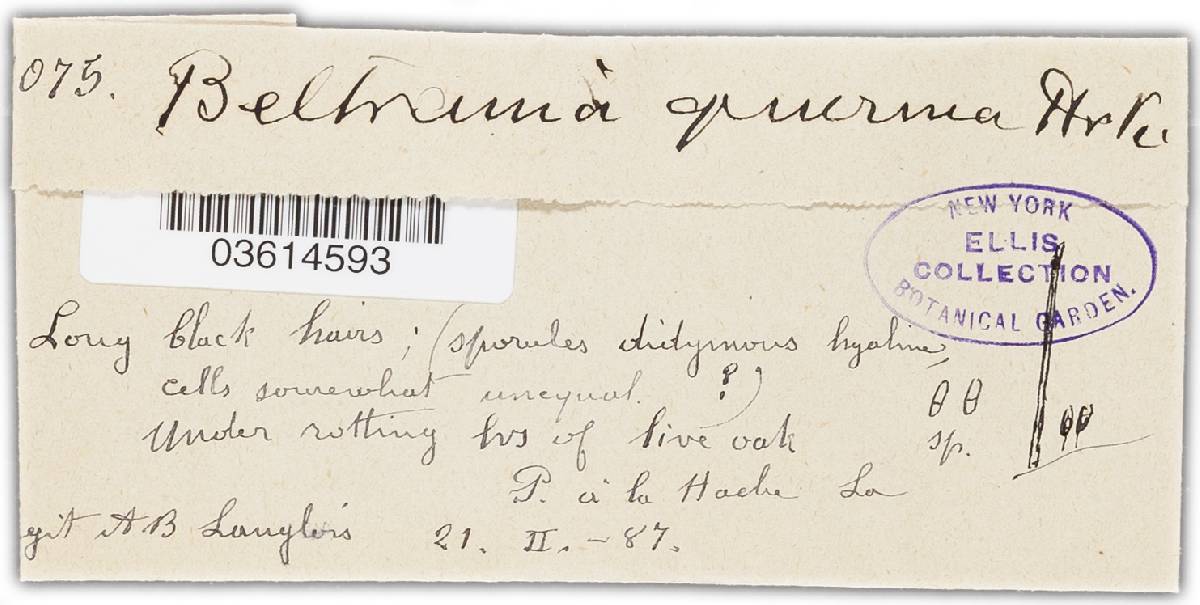 075. Beltrania quernea Hrk.
03614593
NEW YORK
ELLIS
COLLECTION
BOTANICAL GARDEN.
Long black hairs; (sporules didymous hyaline,
cells somewhat unequal. ?)
Under rotting lvs of live oak
sp.
P. à la Hache La
git AB Langlois 21. II. - 87.